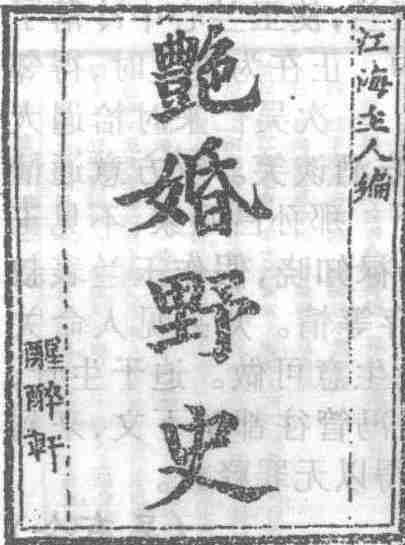 江海主人編
艷婚野史
醒醉軒